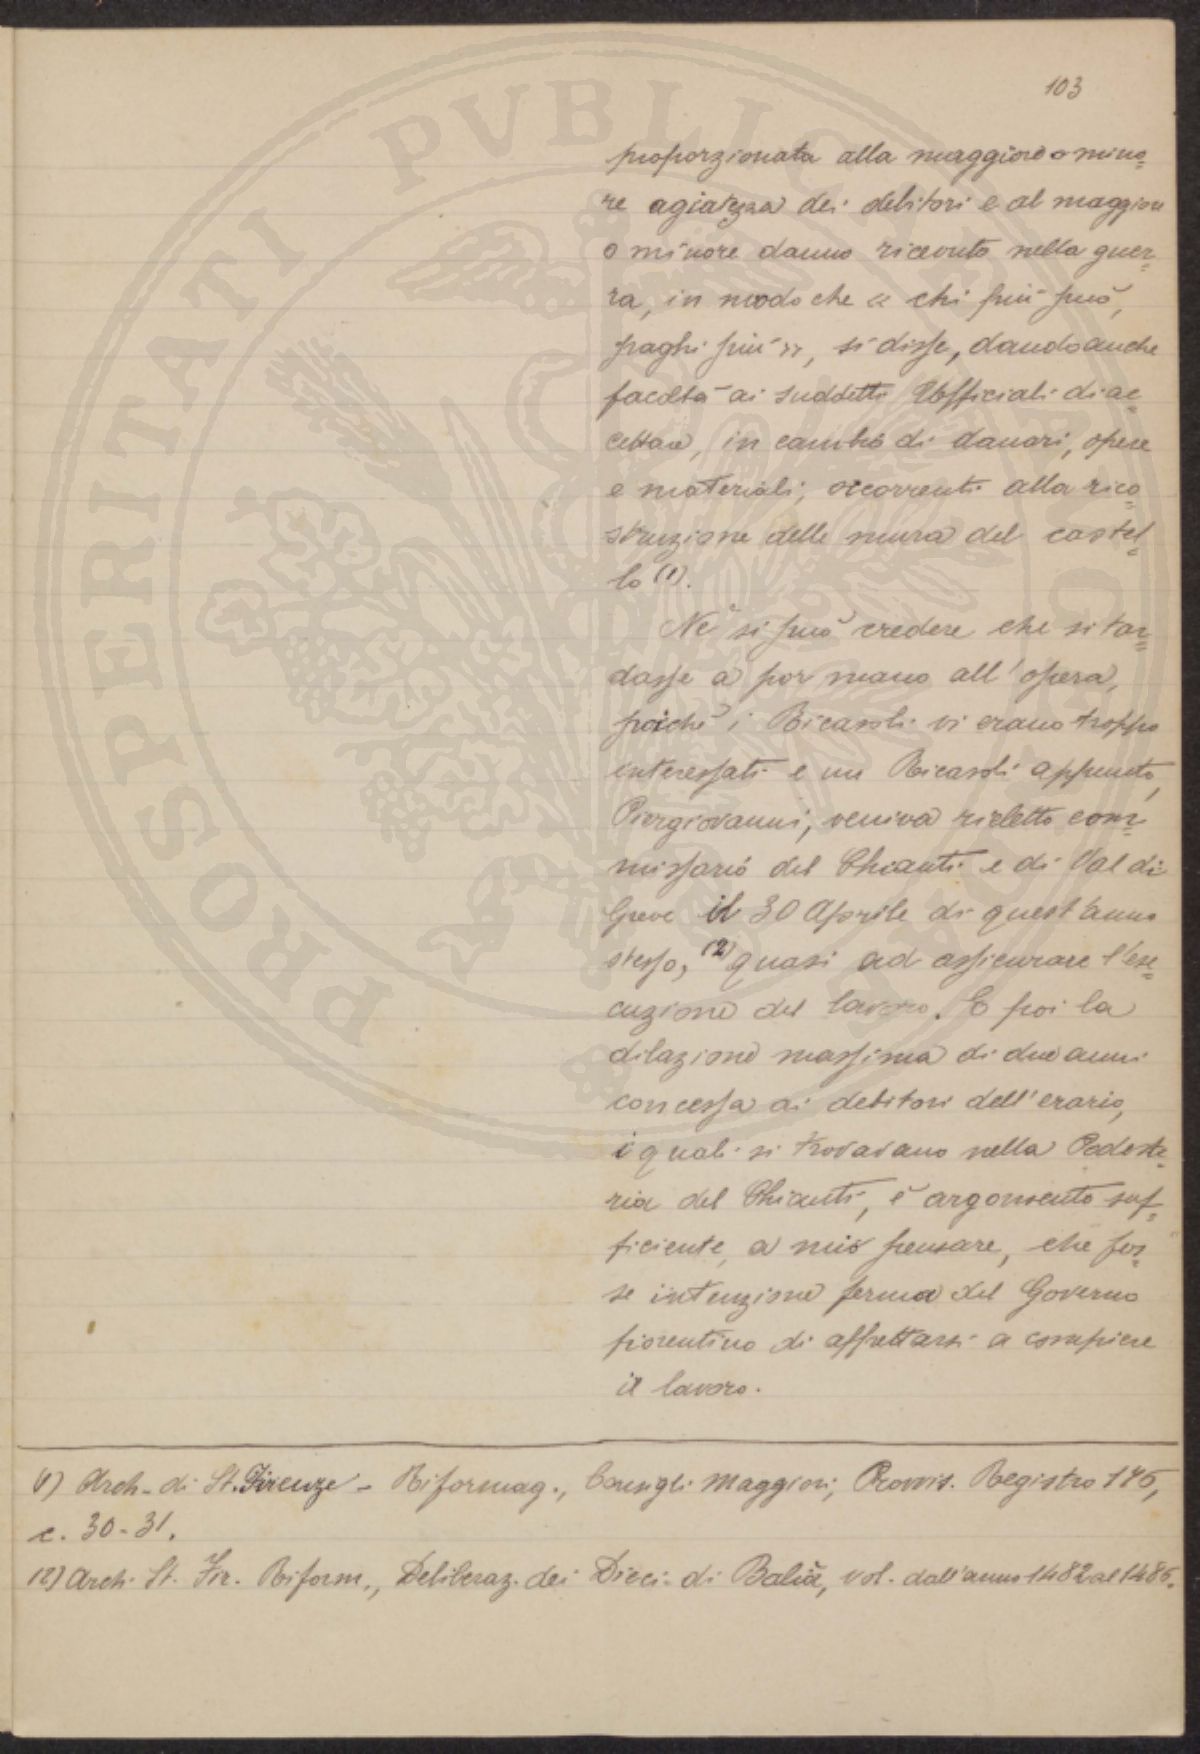 103
proporzionata alla maggiore o mino=
re agiatezza dei debitori e al maggiore
o minore danno ricevuto nella guer=
ra, in modo che « chi più può,
paghi più », si disse, dando anche
facoltà ai suddetti Ufficiali di ac=
cettare, in cambio di danari, opere
e materiali, occorrenti alla rico=
struzione delle mura del castel=
lo (1).
Nè si può credere che si tar=
dasse a por mano all'opera,
poichè i Ricasoli vi erano troppo
interessati e un Ricasoli appunto,
Piergiovanni, veniva rieletto com=
missario del Chianti e di Val di
Greve il 30 Aprile di quest'anno
stesso, (2) quasi ad assicurare l'ese=
cuzione del lavoro. E poi la
dilazione massima di due anni
concessa ai debitori dell'erario,
i quali si trovavano nella Podeste=
ria del Chianti, è argomento suf=
ficiente, a mio pensare, che fos=
se intenzione ferma del Governo
fiorentino di affrettarsi a compiere
il lavoro.
(1) Arch. di St. Firenze - Riformag., Consigli Maggiori, Provvis. Registro 176,
c. 30-31.
(2) Arch. St. Fir. Riform., Deliberaz. dei Dieci di Balìa, vol. dall'anno 1482 al 1486.
PROSPERITATI PVBLICAE AVGENDAE